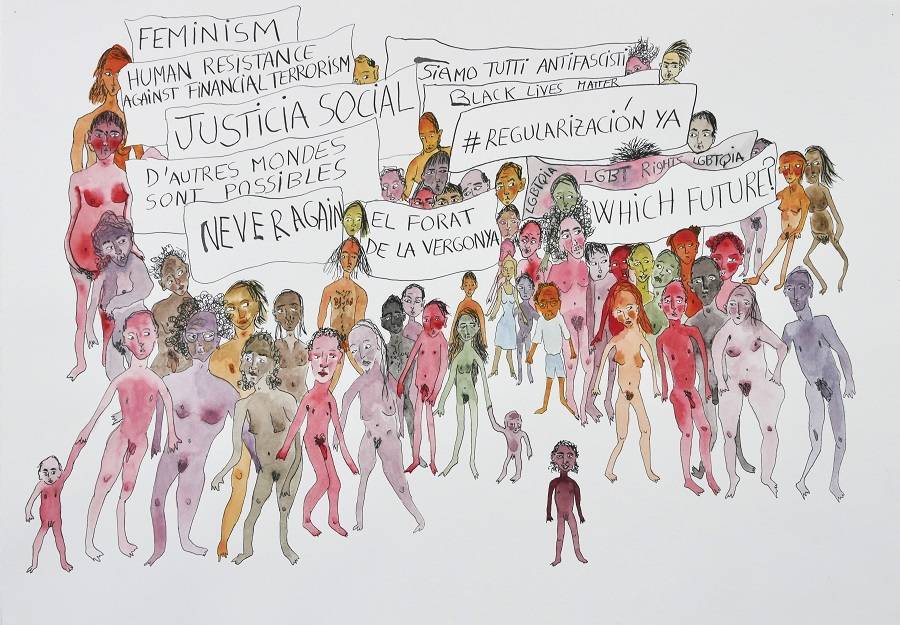 FEMINISM
HUMAN RESISTANCE
AGAINST FINANCIAL TERRORISM
JUSTICIA SOCIAL
D'AUTRES MONDES
SONT POSSIBLES
NEVER AGAIN
EL FORAT
DE LA VERGONYA
SIAMO TUTTI ANTIFASCISTI
BLACK LIVES MATTER
#REGULARIZACIÓN YA
LGBTQIA
LGBT RIGHTS LGBTQIA
WHICH FUTURE?